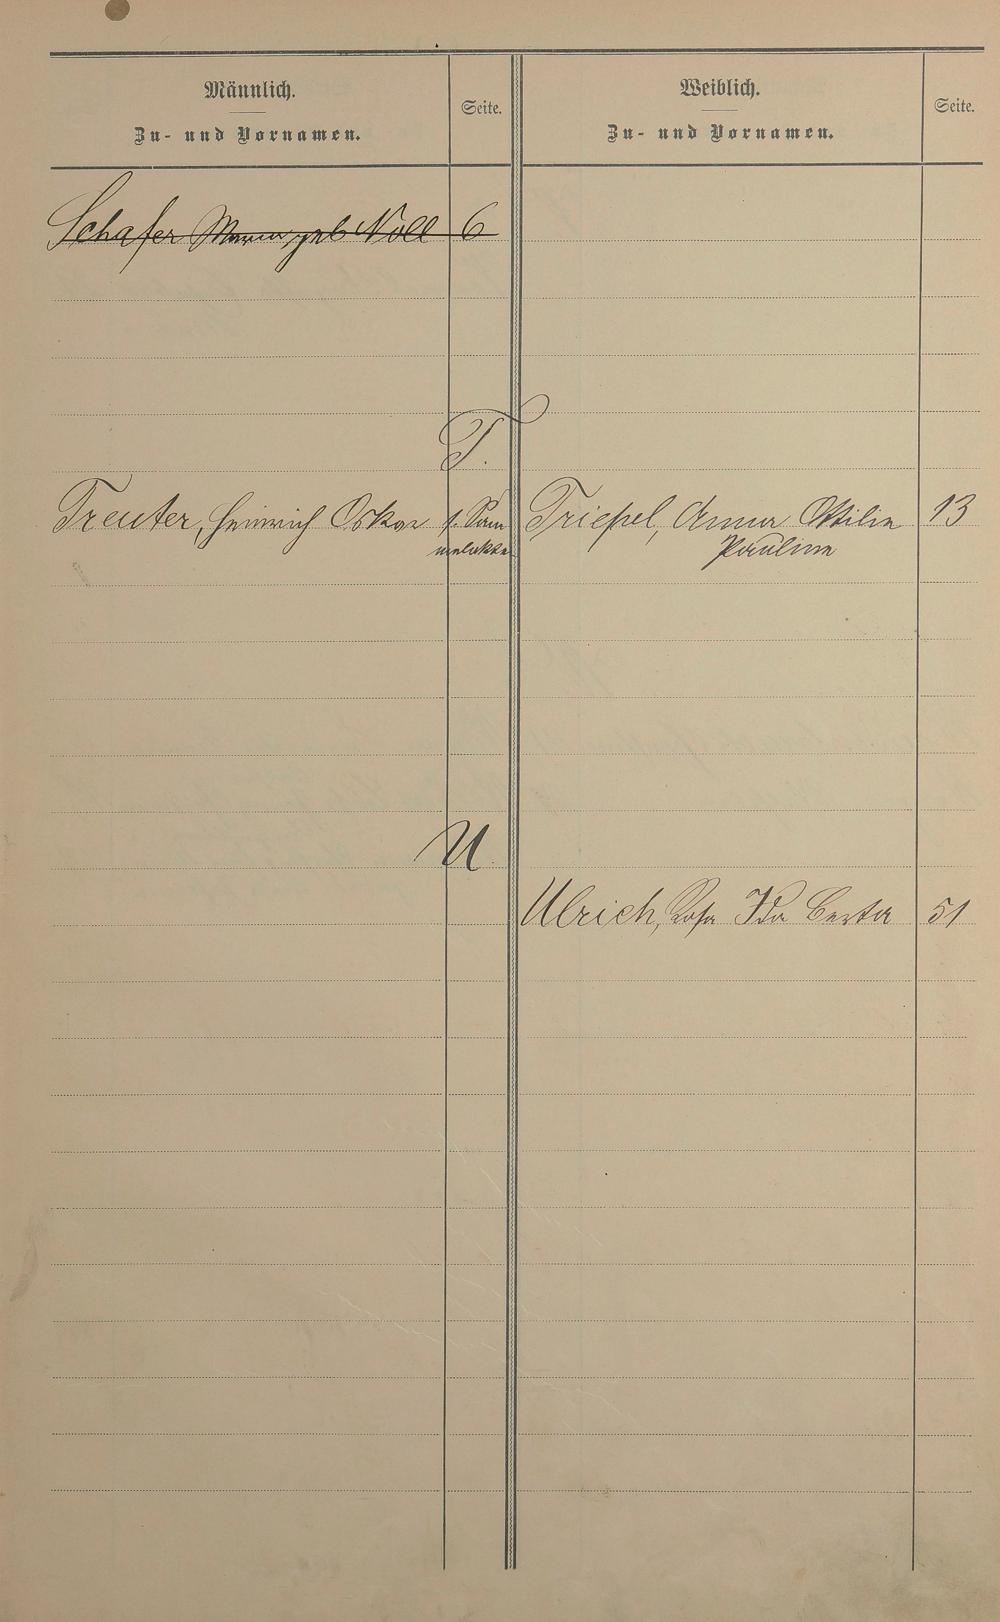 Männlich.
Zu- und Vornamen.
Seite.
Weiblich.
Zu- und Vornamen.
Seite.
Schafer Maria geb Noll 6
T.
Treuter, Heinrich Oskar s. Sam
melakte
Triepel, Anna Ottilie 13
Pauline
U
Ulrich, Rosa Ida Berta 51